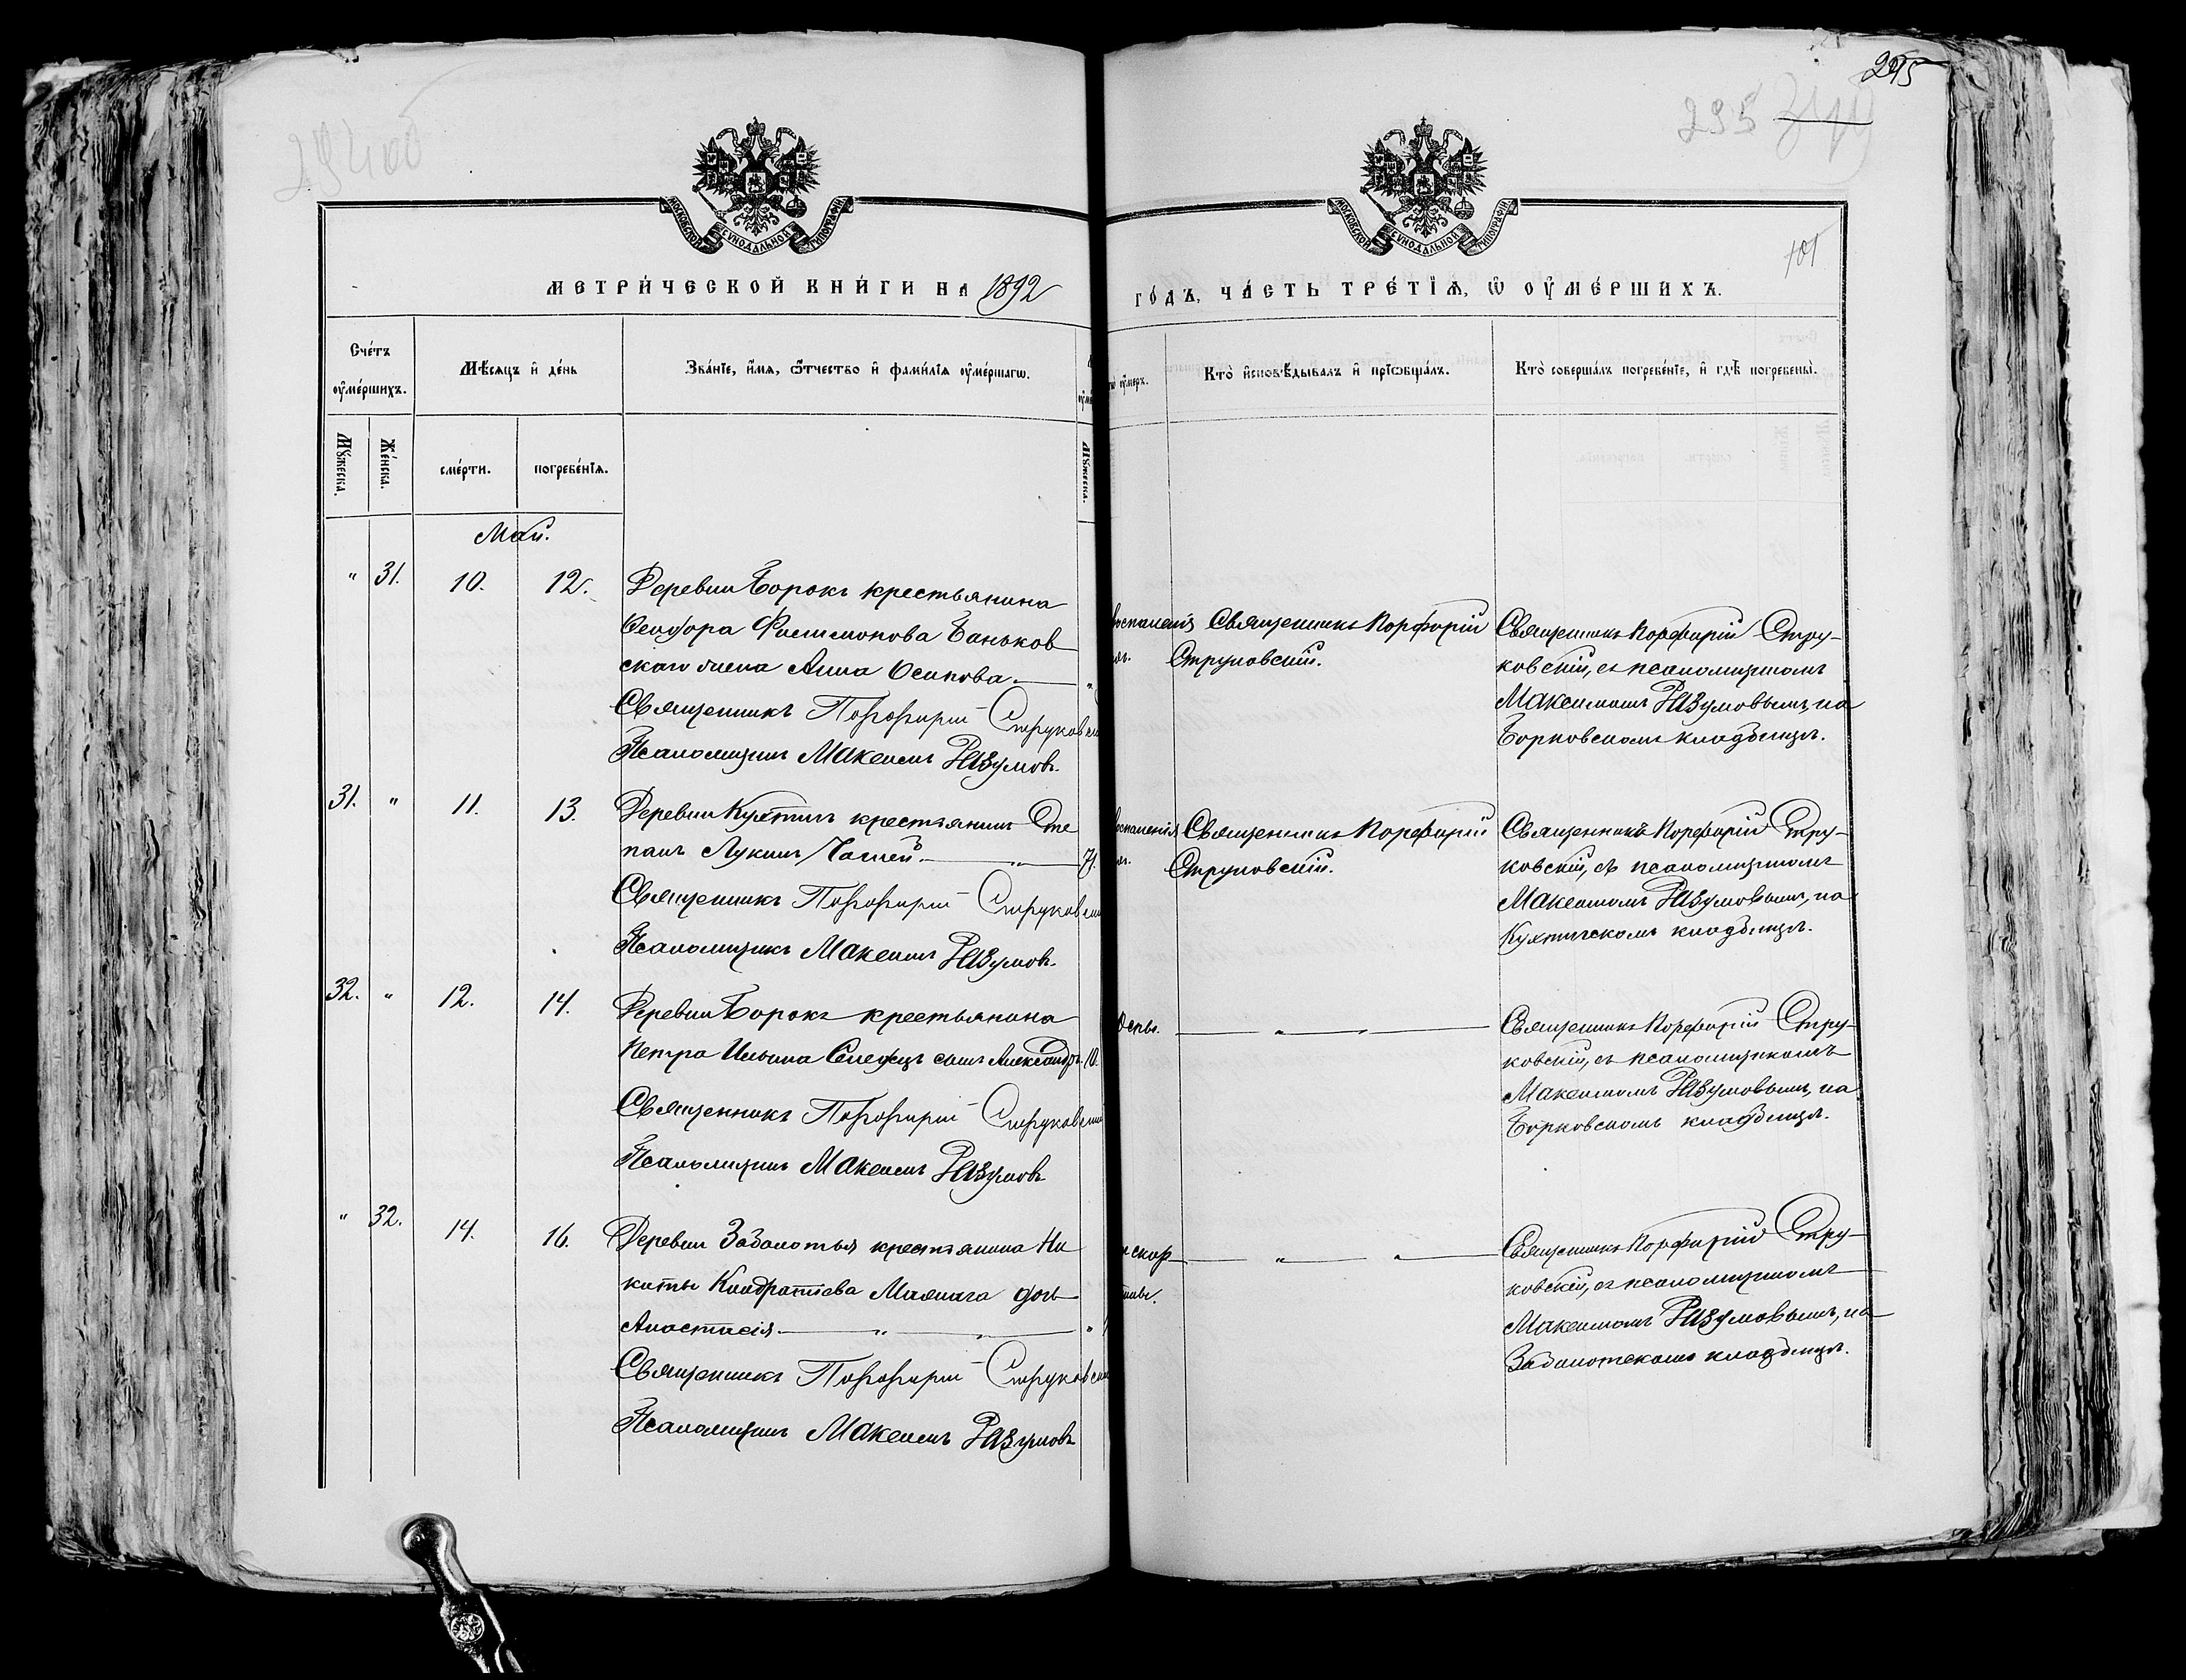 294об
295
295
101
МОСКОВСКОЙ СѴНОДАЛЬНОЙ ТИПОГРАФІИ
МОСКОВСКОЙ СѴНОДАЛЬНОЙ ТИПОГРАФІИ
МЕТРИ́ЧЕСКОЙ КНИ́ГИ НА 1892 ГО́ДЪ, ЧА́СТЬ ТРЕ́ТІѦ, Ѡ҆ ОУ҆МЕ́РШИХЪ.
Сче́тъ оу҆ме́ршихъ.
Мѣ́сяцъ и҆ де́нь
Зва́нїе, и҆́мя, ѻ҆́тчество и҆ фами́лїя оу҆ме́ршагѡ.
оу҆ме́ръ.
Кто̀ и҆сповѣ́дывалъ и҆ прїѡбща́лъ.
Кто̀ соверша́лъ погребе́нїе, и҆ гдѣ̀ погребены̀.
Мꙋ́жеска.
Же́нска.
сме́рти.
погребе́нїя.
Мꙋ́жеска.
Май.
" 31. 10. 12.
Деревни Борокъ крестьянина
Ѳеодора Филимонова Баньков
скаго жена Анна Осипова. "
Священникъ Порфирій Струковскій
Псаломщикъ Максимъ Разумовъ.
воспаленія
Священникъ Порфирій
Струковскій.
Священникъ Порфирій Стру-
ковскій, съ псаломщикомъ
Максимомъ Разумовымъ, на
Борковскомъ кладбищѣ.
31. " 11. 13.
Деревни Кухтичъ крестьянинъ Сте
панъ Лукинъ " 71.
Священникъ Порфирій Струковскій
Псаломщикъ Максимъ Разумовъ.
воспаленія
Священникъ Порфирій
Струковскій.
Священникъ Порфирій Стру-
ковскій, съ псаломщикомъ
Максимомъ Разумовымъ, на
Кухтичскомъ кладбищѣ.
32. " 12. 14.
Деревни Борокъ крестьянина
Петра Ильина сынъ Александръ. 10.
Священникъ Порфирій Струковскій
Псаломщикъ Максимъ Разумовъ
Оспы. " "
Священникъ Порфирій Стру-
ковскій, съ псаломщикомъ
Максимомъ Разумовымъ, на
Борковскомъ кладбищѣ.
" 32. 14. 16.
Деревни Заболотья крестьянина Ни
киты Кондратіева дочь
Анастасія. " " "
Священникъ Порфирій Струковскій
Псаломщикъ Максимъ Разумовъ
" "
Священникъ Порфирій Стру-
ковскій, съ псаломщикомъ
Максимомъ Разумовымъ, на
Заболотскомъ кладбищѣ.